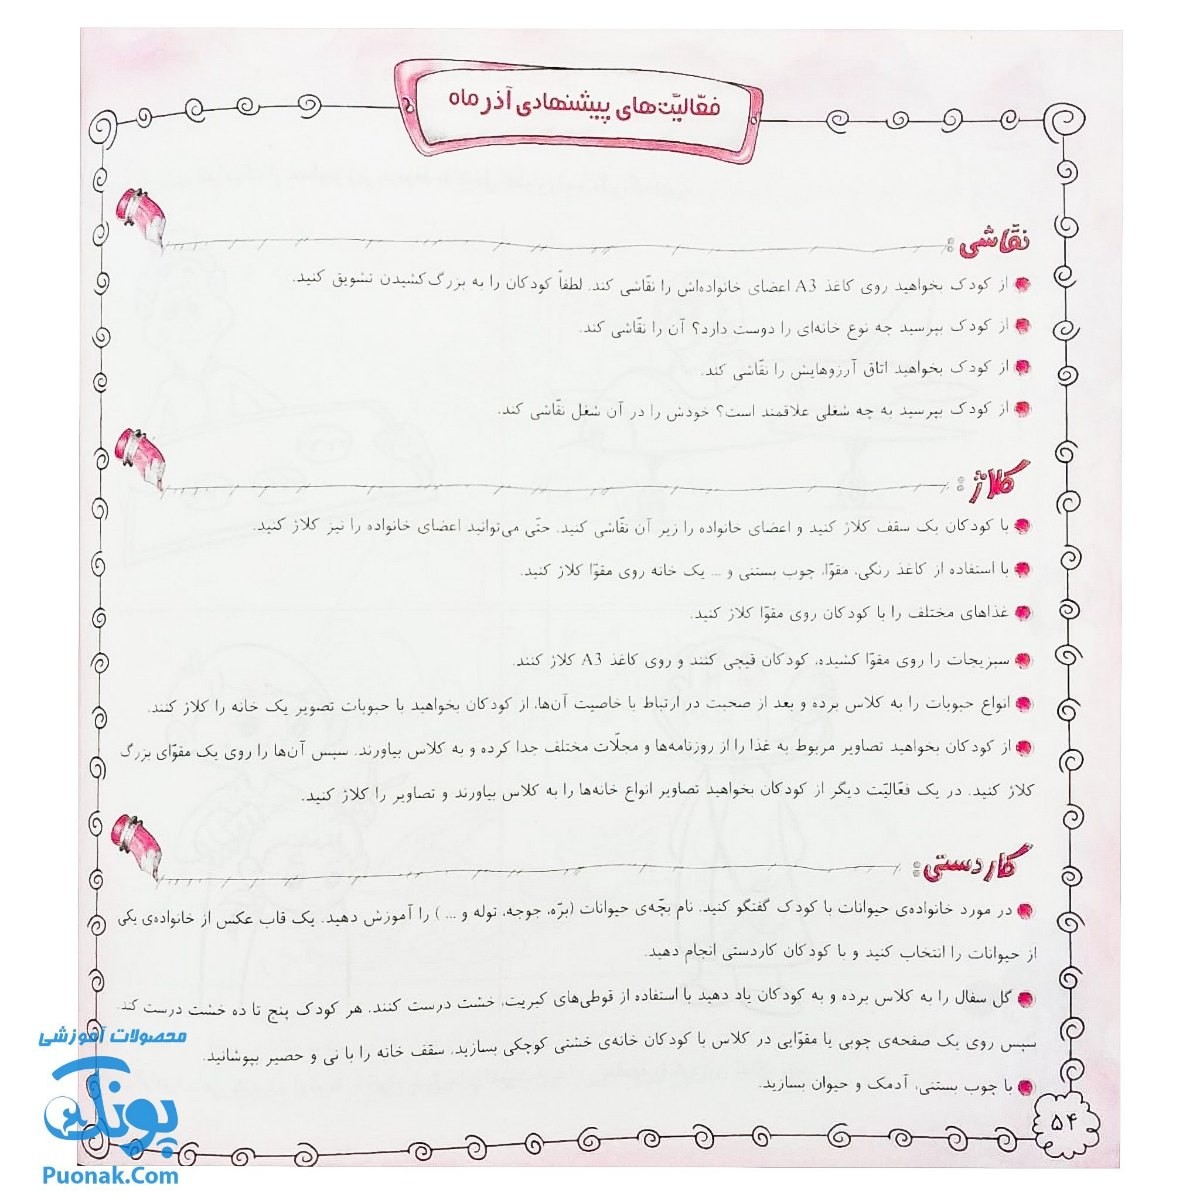 فعّالیّت‌های پیشنهادی آذر ماه
نقّاشی:
از کودک بخواهید روی کاغذ A3 اعضای خانواده‌اش را نقّاشی کند. لطفاً کودکان را به بزرگ کشیدن تشویق کنید.
از کودک بپرسید چه نوع خانه‌ای را دوست دارد؟ آن را نقّاشی کند.
از کودک بخواهید اتاق آرزوهایش را نقّاشی کند.
از کودک بپرسید به چه شغلی علاقمند است؟ خودش را در آن شغل نقّاشی کند.
کلاژ:
با کودکان یک سقف کلاژ کنید و اعضای خانواده را زیر آن نقّاشی کنید. حتّی می‌توانید اعضای خانواده را نیز کلاژ کنید.
با استفاده از کاغذ رنگی، مقوّا، چوب بستنی و ... یک خانه روی مقوّا کلاژ کنید.
غذاهای مختلف را با کودکان روی مقوّا کلاژ کنید.
سبزیجات را روی مقوّا کشیده، کودکان قیچی کنند و روی کاغذ A3 کلاژ کنند.
انواع حبوبات را به کلاس برده و بعد از صحبت در ارتباط با خاصیت آن‌ها، از کودکان بخواهید با حبوبات تصویر یک خانه را کلاژ کنند.
از کودکان بخواهید تصاویر مربوط به غذا را از روزنامه‌ها و مجلّات مختلف جدا کرده و به کلاس بیاورند. سپس آن‌ها را روی یک مقوّای بزرگ
کلاژ کنید. در یک فعّالیّت دیگر از کودکان بخواهید تصاویر انواع خانه‌ها را به کلاس بیاورند و تصاویر را کلاژ کنید.
کاردستی:
در مورد خانواده‌ی حیوانات با کودک گفتگو کنید. نام بچّه‌ی حیوانات (برّه، جوجه، توله و ... ) را آموزش دهید. یک قاب عکس از خانواده‌ی یکی
از حیوانات را انتخاب کنید و با کودکان کاردستی انجام دهید.
گل سفال را به کلاس برده و به کودکان یاد دهید با استفاده از قوطی‌های کبریت، خشت درست کنند. هر کودک پنج تا ده خشت درست کند.
سپس روی یک صفحه‌ی چوبی یا مقوّایی در کلاس با کودکان خانه‌ی خشتی کوچکی بسازید. سقف خانه را با نی و حصیر بپوشانید.
با چوب بستنی، آدمک و حیوان بسازید.
۵۴
محصولات آموزشی
پونک
Puonak.Com